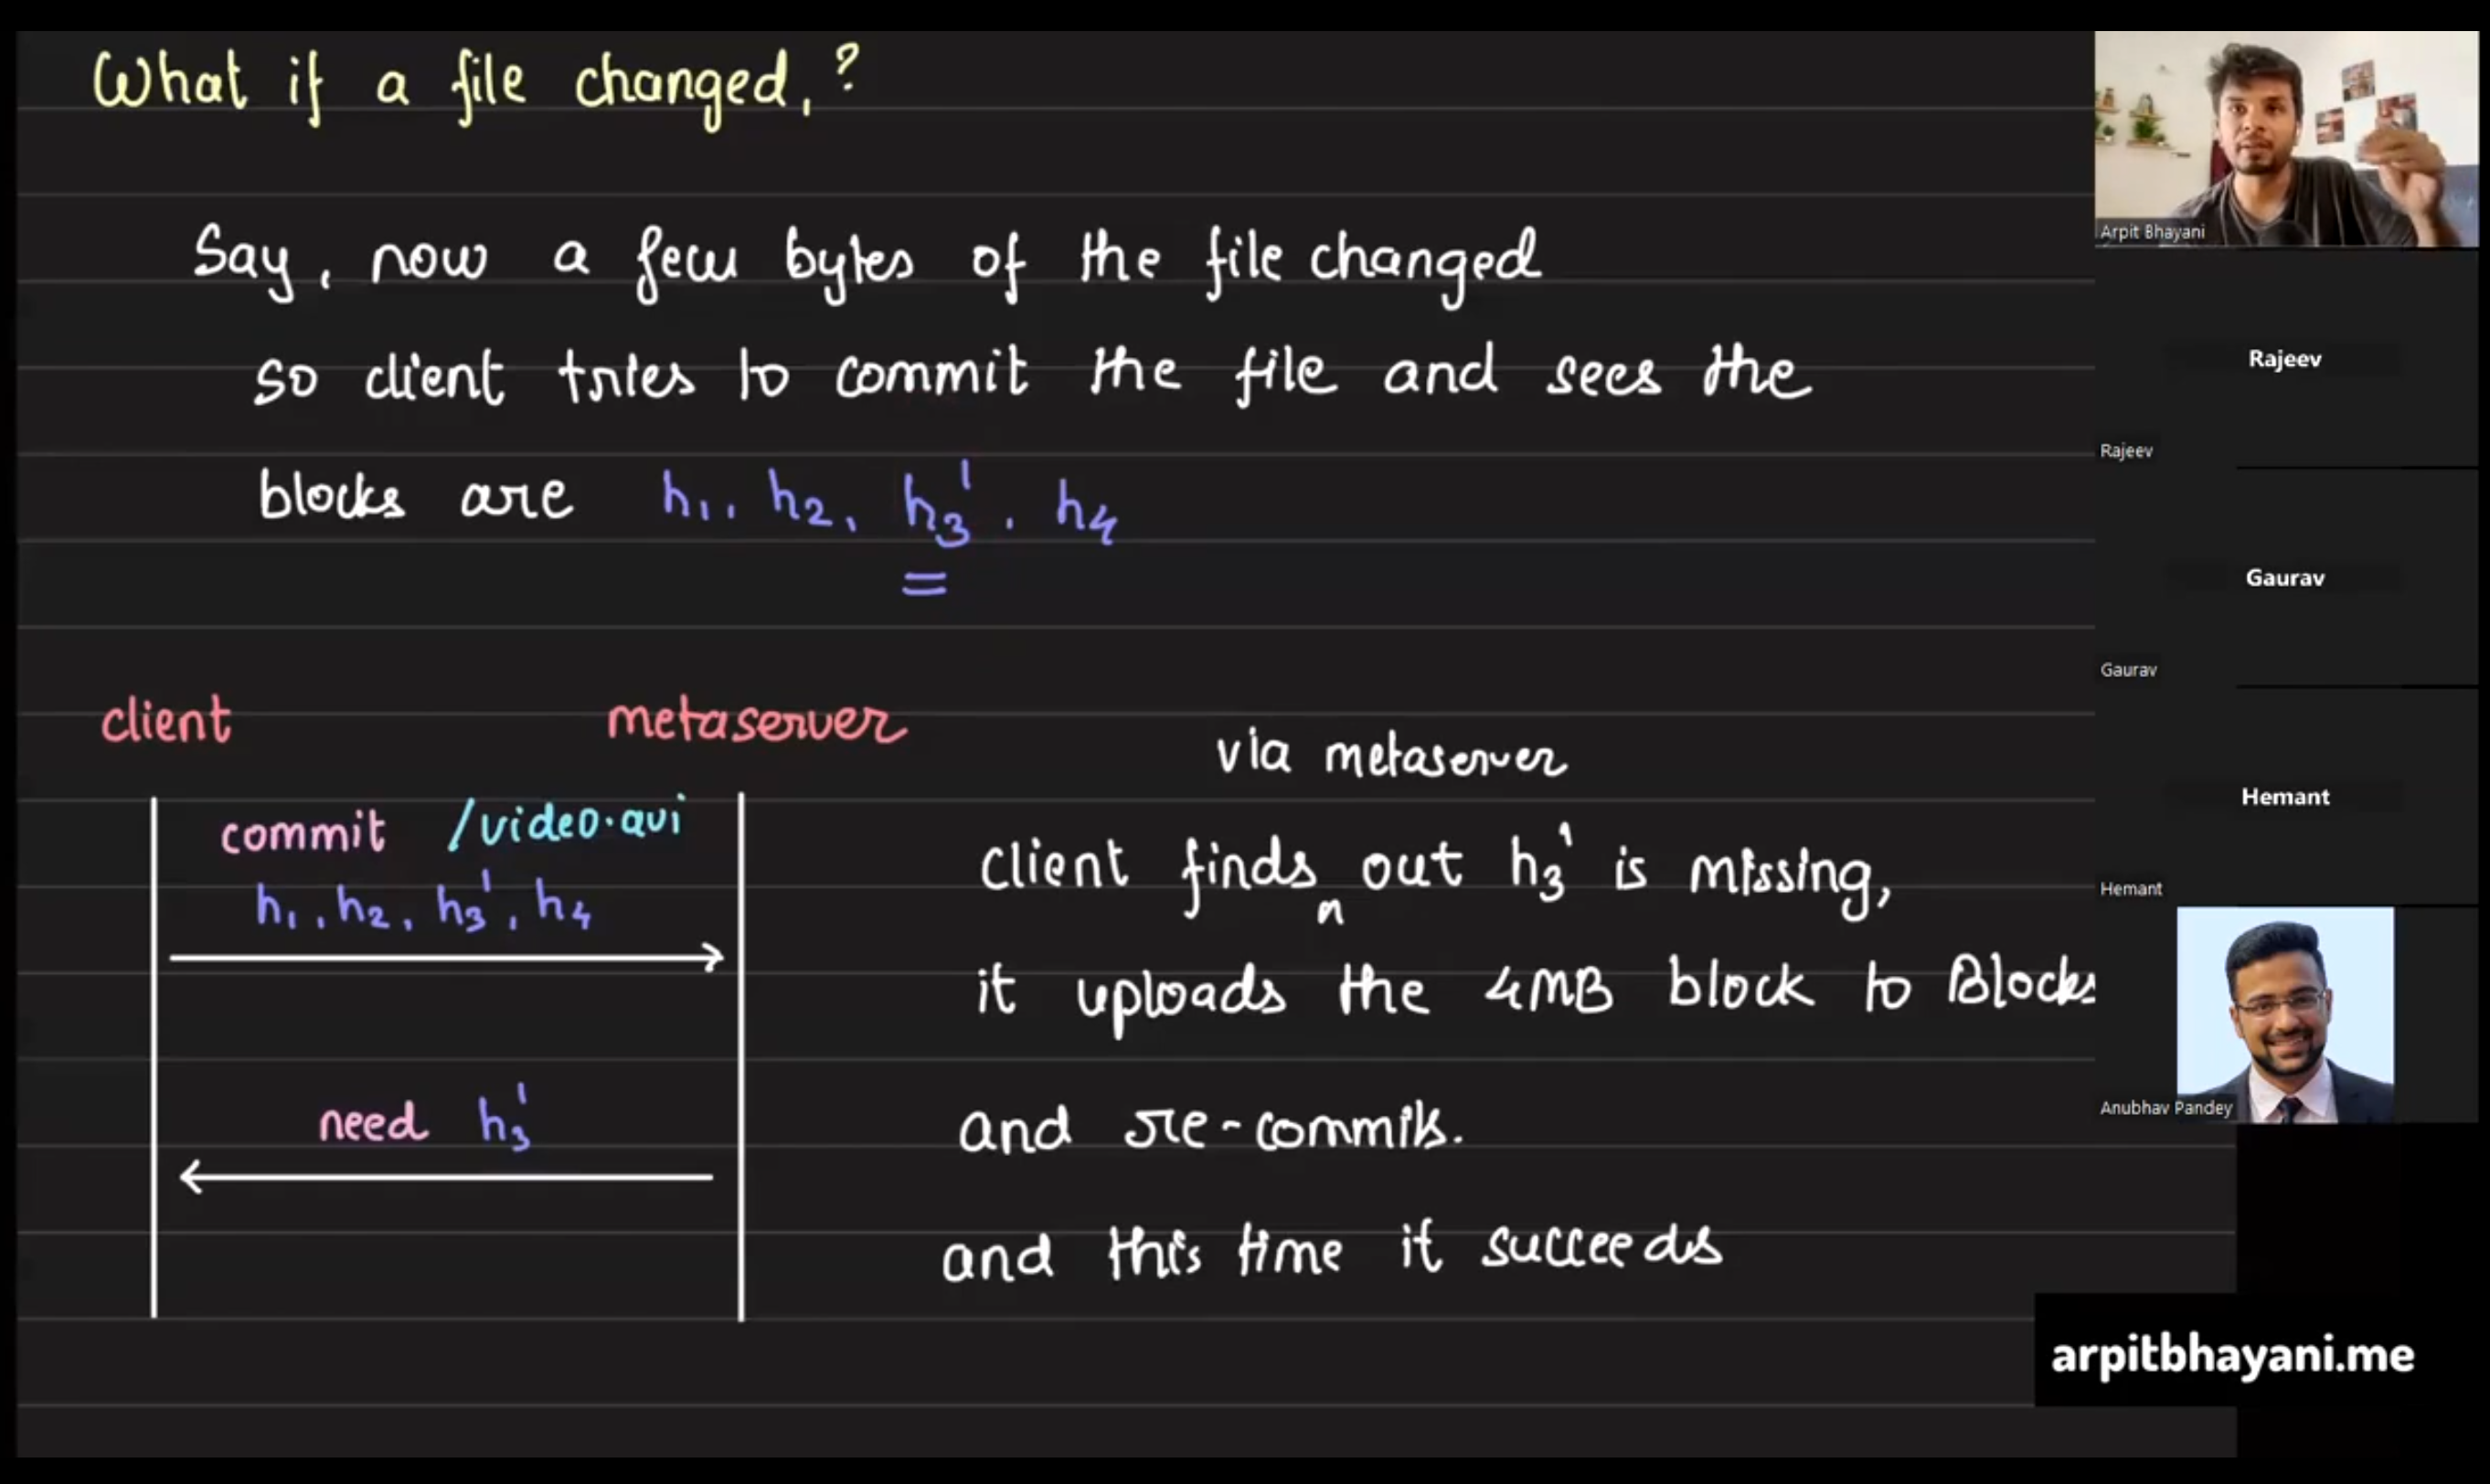 What if a file changed, ?
Say, now a few bytes of the file changed
so client tries to commit the file and sees the
blocks are h1, h2, h3', h4
client
metaserver
commit /video.avi
h1, h2, h3', h4
need h3'
via metaserver
client finds out h3' is missing,
it uploads the 4MB block to Blocks
and re-commits.
and this time it succeeds
Arpit Bhayani
Rajeev
Rajeev
Gaurav
Gaurav
Hemant
Hemant
Anubhav Pandey
arpitbhayani.me